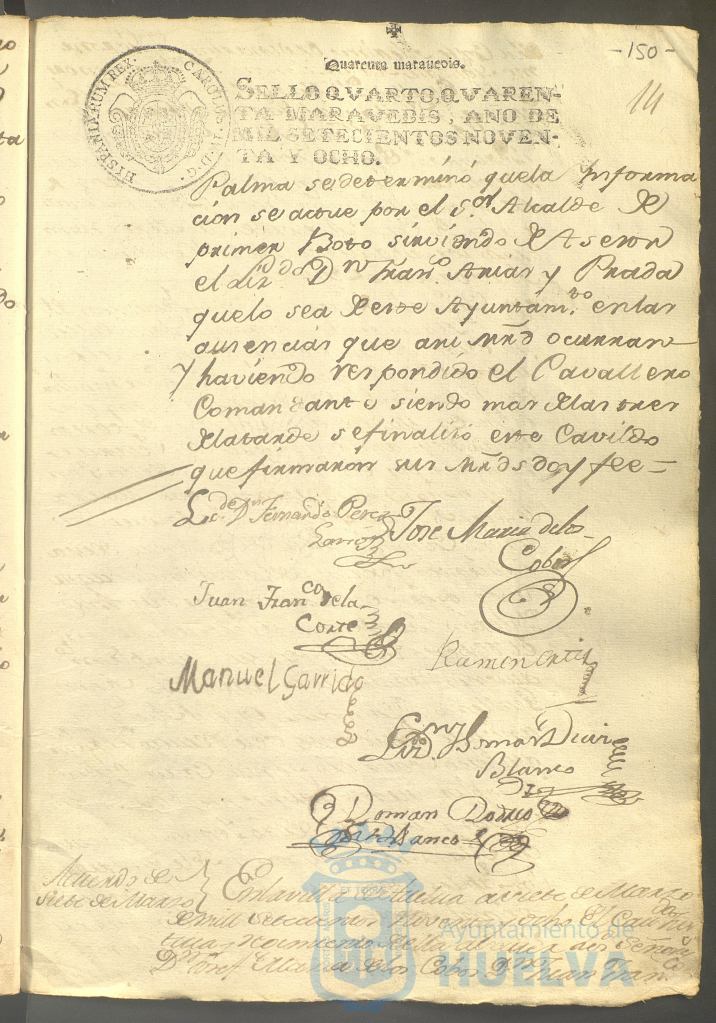 -150-
14
Quarenta marauedis.
HISPANIARUM REX. CAROLUS IV D. G.
SELLO QVARTO, QVAREN-
TA MARAVEDIS, AÑO DE
MIL SETECIENTOS NOVEN-
TA Y OCHO.
Palma se determinó quela Informa
cion se actue por el Sor. Alcalde de
primer Boto sirviendo de Asesor
el Lizdo Dn Franco. Arias y Prada
quelo sea de este Ayuntamto. enlas
ausencias que asi mrd ocurran
y haviendo respondido el Cavallero
Comandante siendo mas delas tres
dela tarde se finalizó este Cavildo
que firmaron sus mrds doy fee =
Licdo. Dn Fernando Perez
Jose Maria delos
Cobos
Juan Franco dela
Corte
Ramon Ortiz
Manuel Garrido
Blanco
Roman
Blanco
Acuerdo de
siete de Marzo
En la villa de Huelva a siete de Marzo
de mill setecientos noventa y ocho el
Dn Josef Maria delos Cobos Dn Juan Fran
Ayuntamiento de
HUELVA